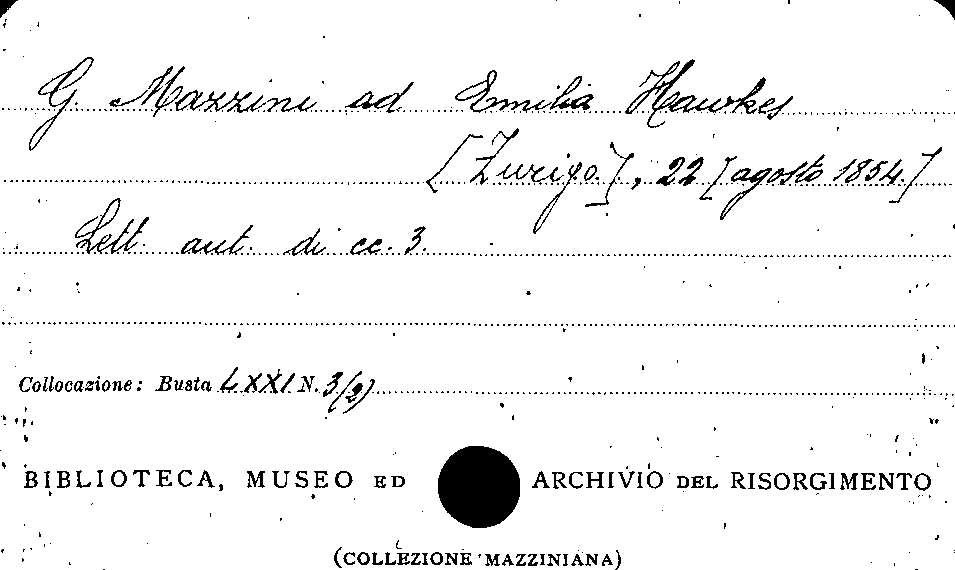 G. Mazzini ad Emilia Hawkes
[Zurigo.], 22 [agosto 1854.]
Lett. aut. di cc. 3.
Collocazione: Busta LXXI N. 3/(2)
BIBLIOTECA, MUSEO ED ARCHIVIO DEL RISORGIMENTO
(COLLEZIONE MAZZINIANA)